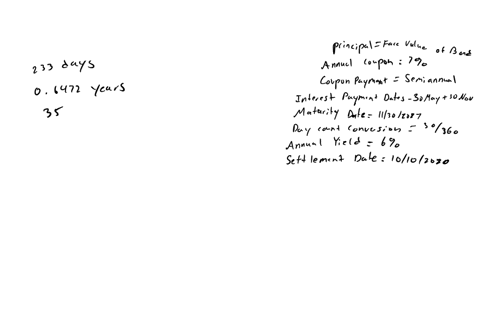 233 days
0.6472 years
35
principal = Face Value of Bond
Annual coupon = 7%
Coupon Payment = Semiannual
Interest Payment Dates - 30 May + 30 Nov
Maturity Date = 11/30/2037
Day count convension = 30/360
Annual Yield = 6%
Settlement Date = 10/10/2020